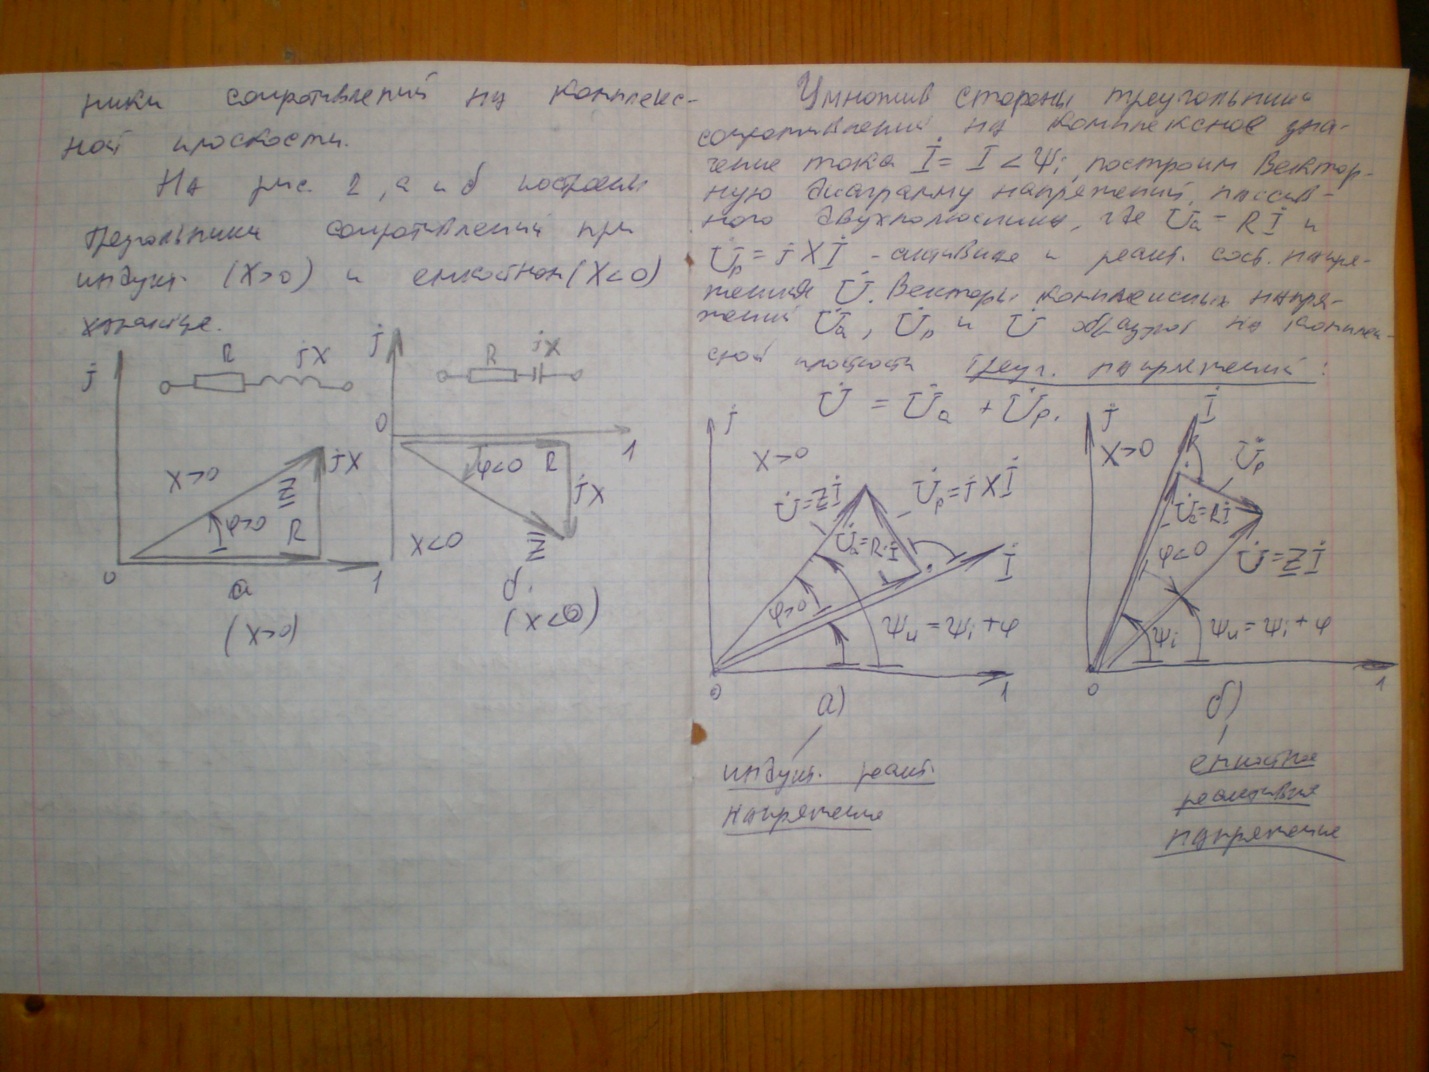 ники сопротивлений на комплекс-
ной плоскости.
На рис. 2, а и б построены
треугольники сопротивлений при
индукт. (X>0) и емкостном (X<0)
характере.
j
R
jX
X>0
jX
Z
R
φ>0
0
1
а
(X>0)
j
R
jX
0
1
φ<0
R
jX
X<0
Z
б.
(X<0)
Умножив стороны треугольника
сопротивлений на комплексное зна-
чение тока İ = I < Ψi, построим вектор-
ную диаграмму напряжений пассив-
ного двухполюсника, где U̇а = Rİ и
U̇р = jXİ - активная и реакт. сост. напря-
жения U̇. Векторы комплексных напря-
жений U̇а, U̇р и U̇ образуют на комплек-
сной плоскости треуг. напряжений:
U̇ = U̇а + U̇р.
j
X>0
U̇=Zİ
U̇р=jXİ
U̇а=R·İ
İ
φ>0
Ψu = Ψi + φ
0
1
а)
индукт. реакт.
напряжение
j
X>0
İ
U̇р
U̇а=Rİ
φ<0
U̇=Zİ
Ψi
Ψu = Ψi + φ
0
1
б)
емкостное
реактивное
напряжение